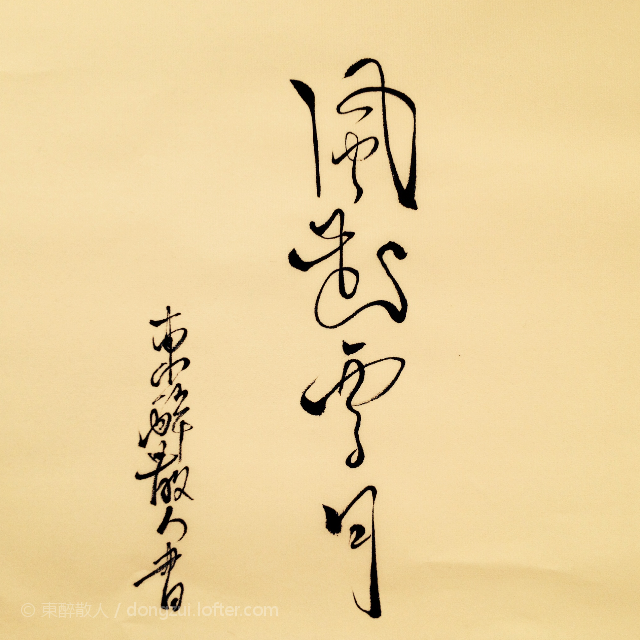 風花雪月
東醉散人書
© 東醉散人 / dongzui.lofter.com